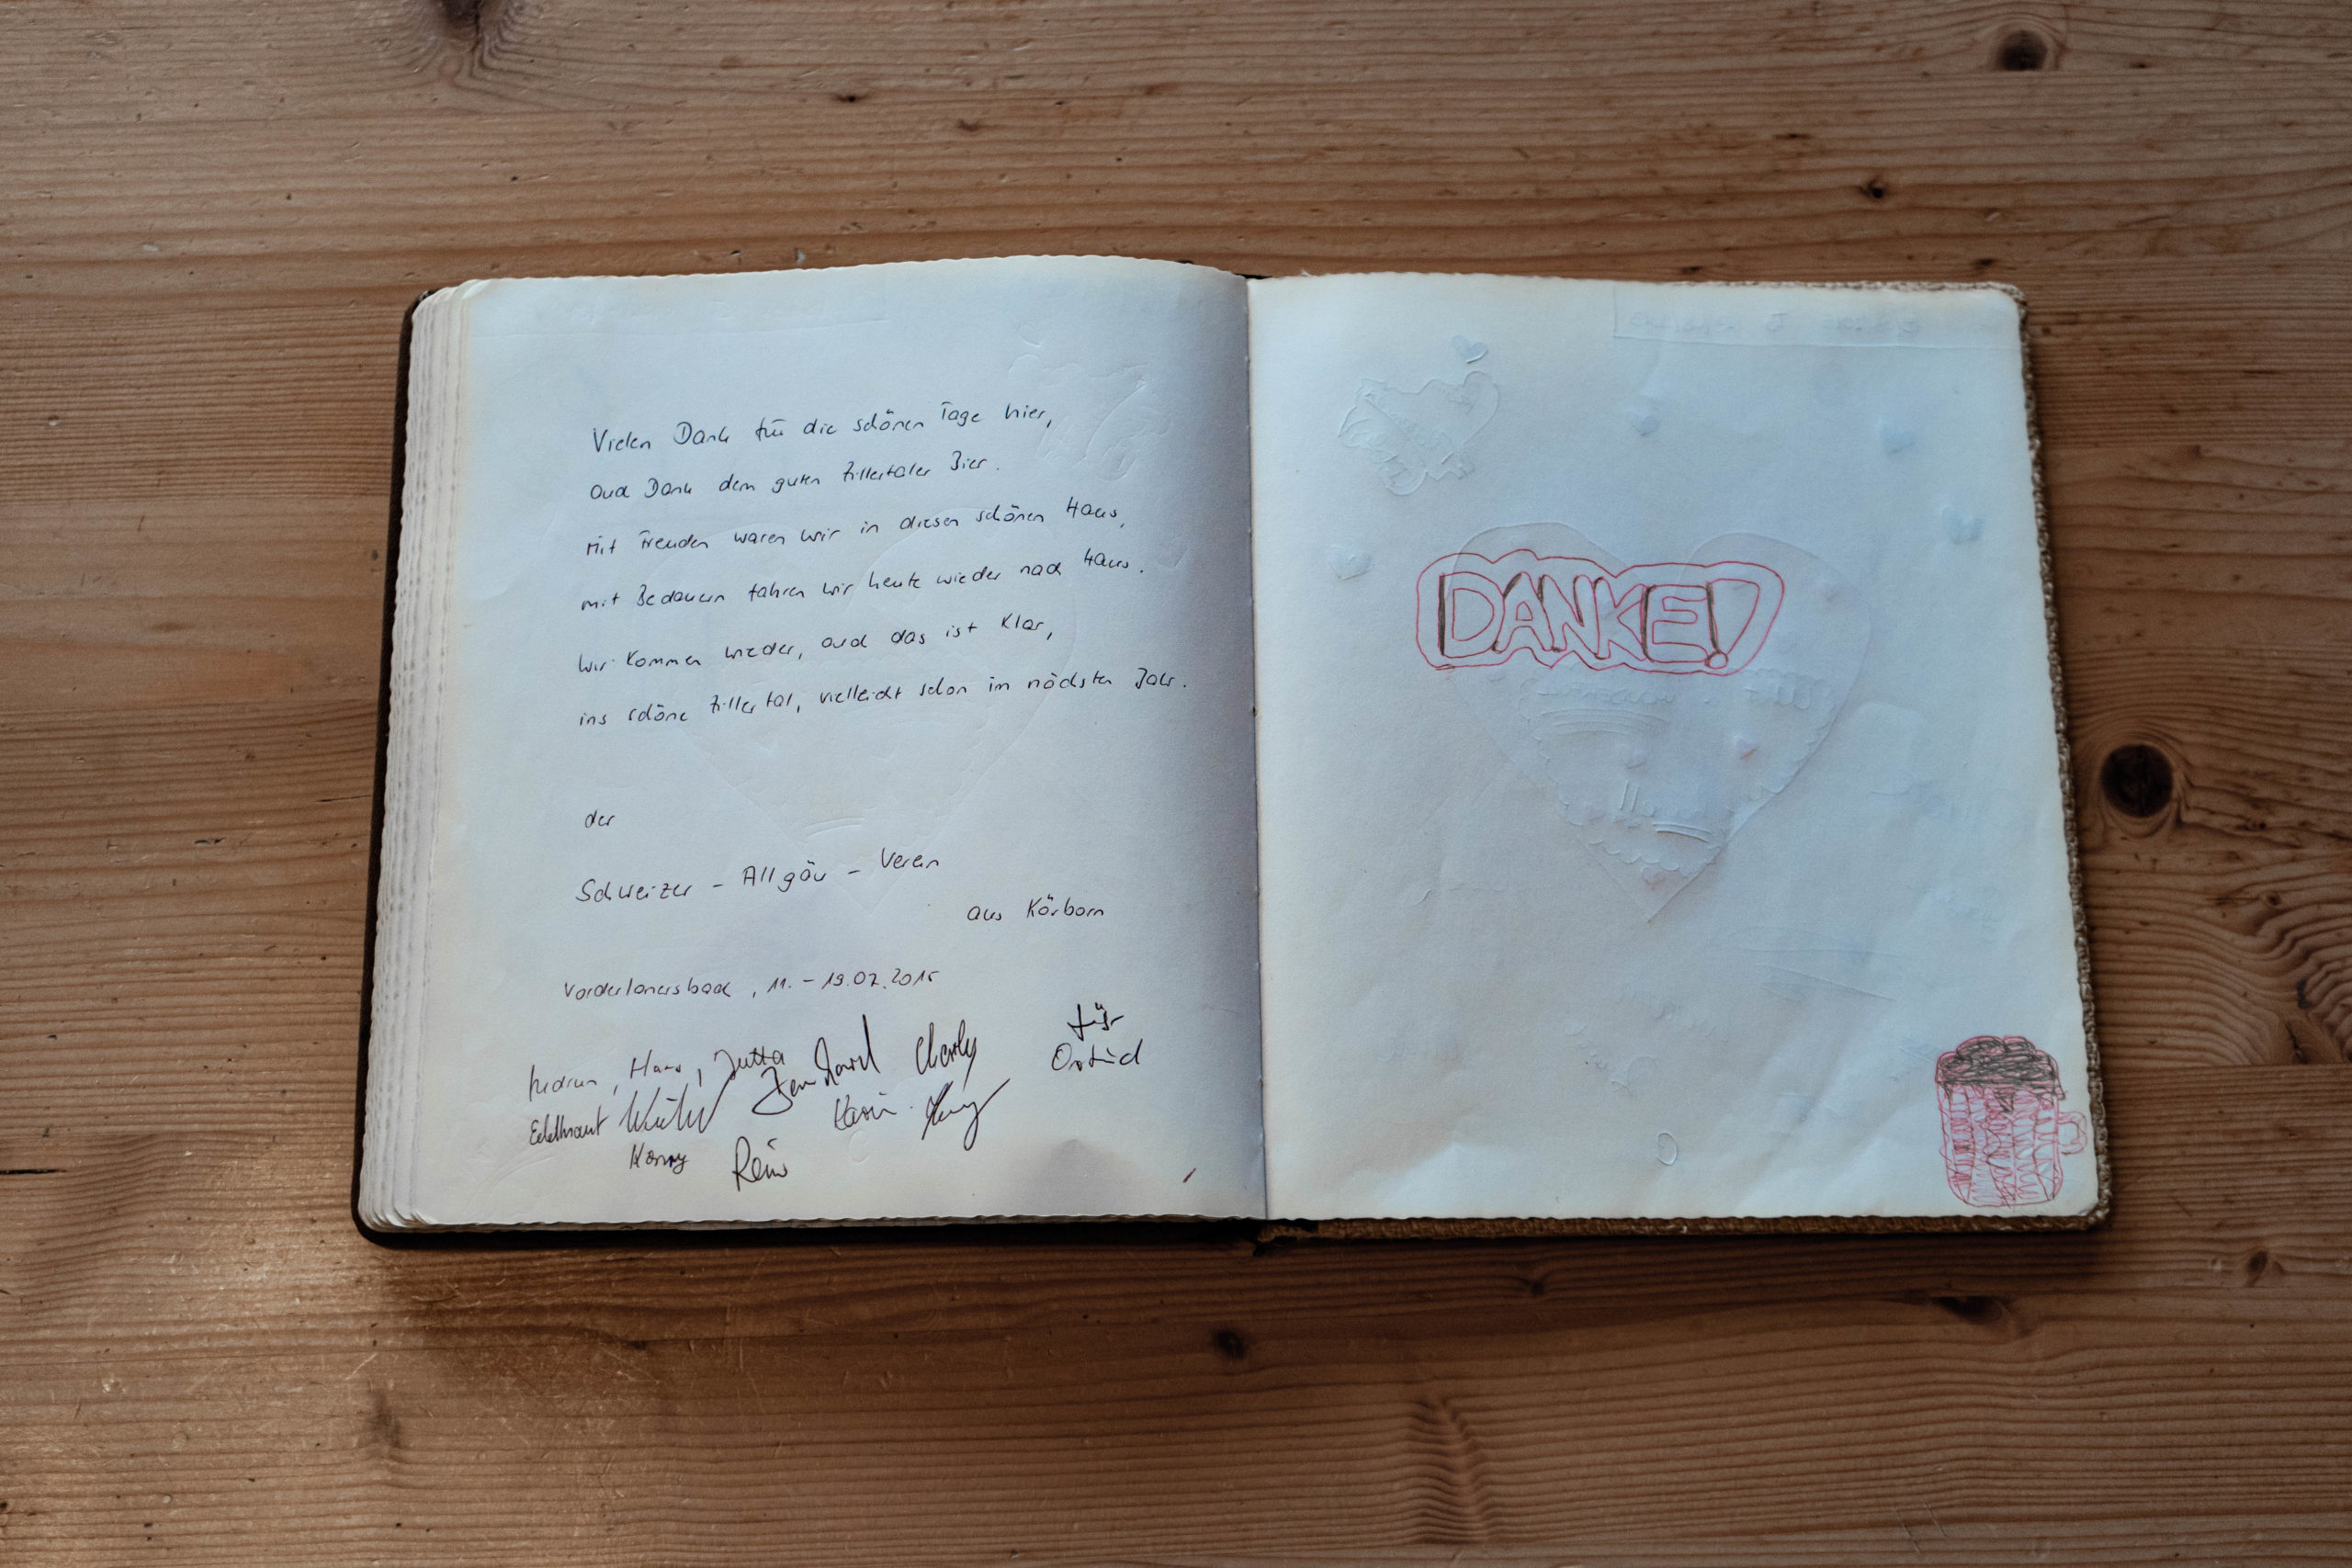 Vielen Dank für die schönen Tage hier,
und Dank dem guten Zillertaler Bier.
Mit Freuden waren wir in diesen schönen Haus,
mit Bedauern fahren wir heute wieder nach Haus.
Wir kommen wieder, und das ist klar,
ins schöne Zillertal, vielleicht schon im nächsten Jahr.
der
Schweizer - Allgäu - Verein
aus Körborn
Vorderlanersbach, 11. - 19.07.2015
Hans, Jutta Charly für
Ortrud
Edeltraut Karin
Konny
DANKE!